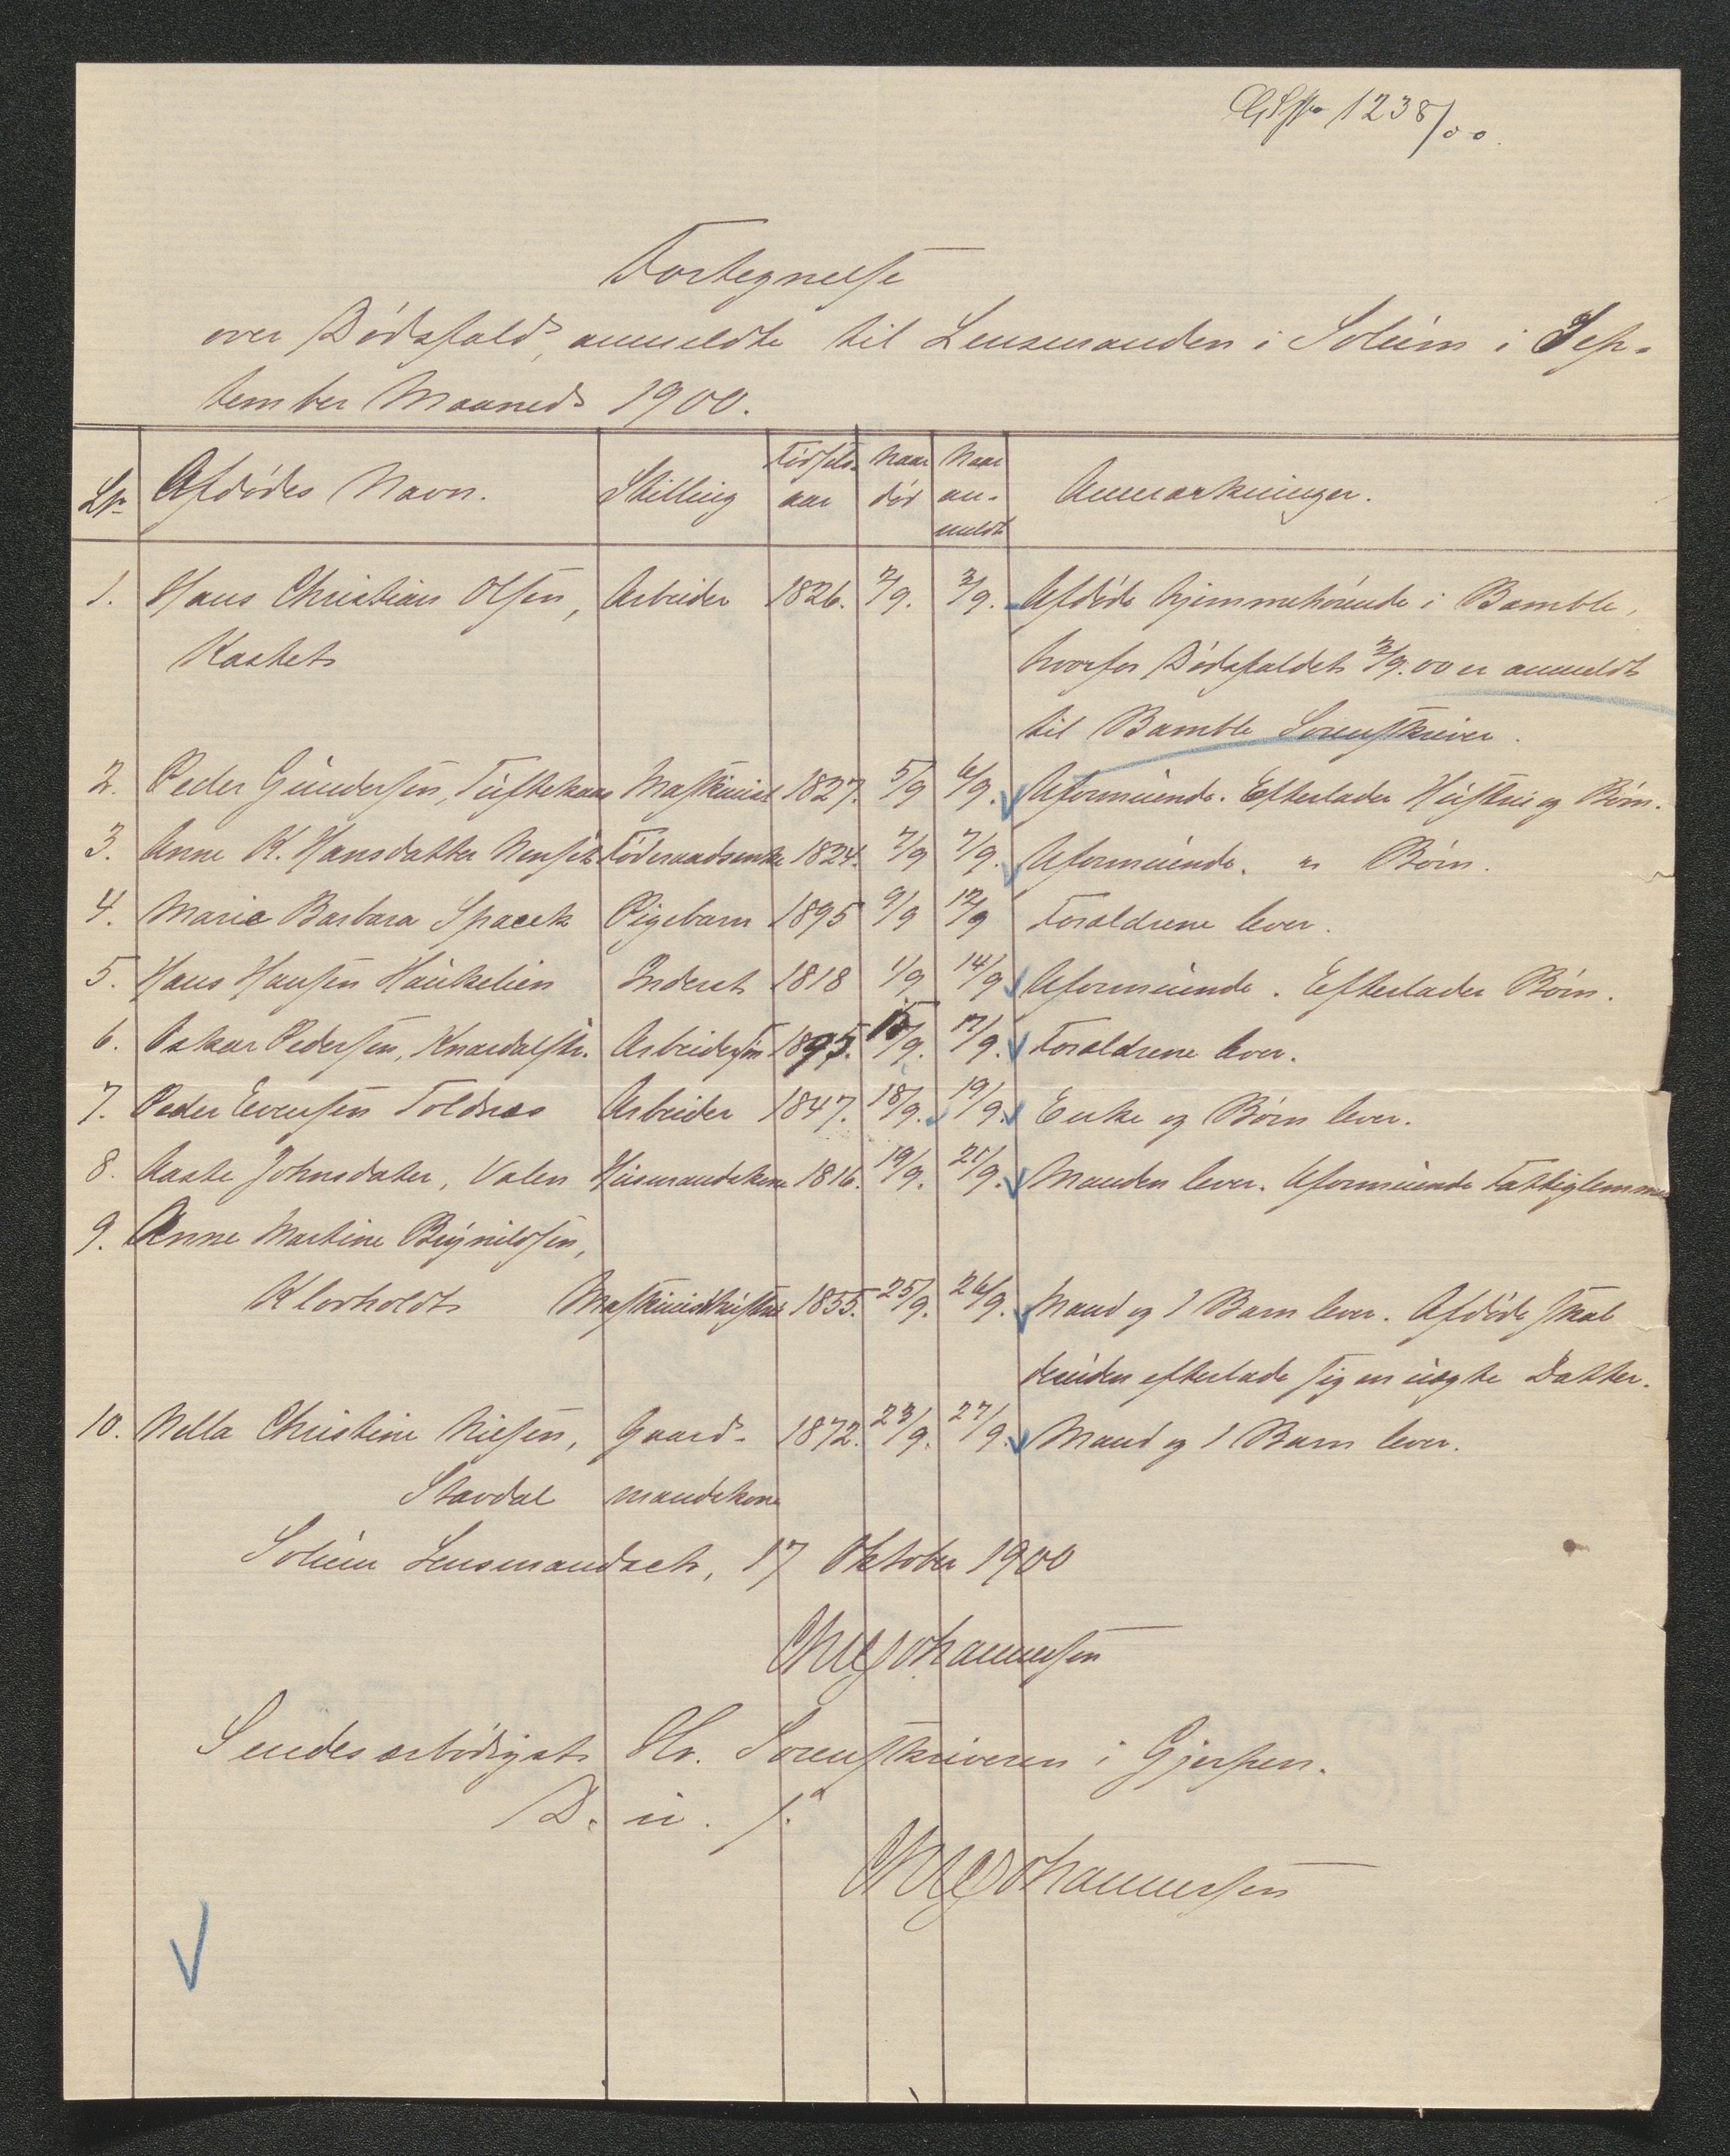 1238/00.
Fortegnelse
over Dødsfald, anmeldte til Lensmanden i Solum i Sep-
tember Maaned 1900.
Lr. Afdødes Navn. Stilling Fødsels- aar Naar død Naar an- meldt Anmærkninger.
1. Hans Christian Olsen, Arbeider 1826. 2/9. 3/9. Afdøde hjemmehørende i Bamble,
Kastet hvorfor Dødsfaldet 3/9.00 er anmeldt
til Bamble Sorenskriver.
2. Peder Gundersen, Tuftekaas Maskinist 1827. 5/9 6/9. Uformuende. Efterlader Hustru og Børn.
3. Anne K. Hansdatter Nenset Føderaadsenke 1824. 7/9 7/9. Uformuende. " Børn.
4. Marie Barbara Spacek Pigebarn 1895 9/9 12/9 Forældrene lever.
5. Hans Hansen Haukelien Inderst 1818 1/9 14/9 Uformuende. Efterlader Børn.
6. Oskar Pedersen, Knardalstr. Arbeidersøn 1895. 15/9. 17/9. Forældrene lever.
7. Peder Evensen Toldnæs Arbeider 1847. 18/9. 19/9. Enke og Børn lever.
8. Aaste Johnsdatter, Valen Husmandskone 1816. 19/9. 21/9. Manden lever. Uformuende Fattiglemmer
9. Anne Martine Brynildsen,
Klovholdt Maskinisthustru 1855. 25/9. 26/9. Mand og 1 Barn lever. Afdøde skal
desuden efterlade sig en uægte Datter.
10. Nella Christine Nilsen, Gaard- 1872. 23/9. 27/9. Mand og 1 Barn lever.
Stavdal mandskone
Solum Lensmandset, 17 Oktober 1900
Johannessen
Sendes ærbødigst Hr. Sorenskriveren i Gjerpen.
D. u. s.
Johannessen